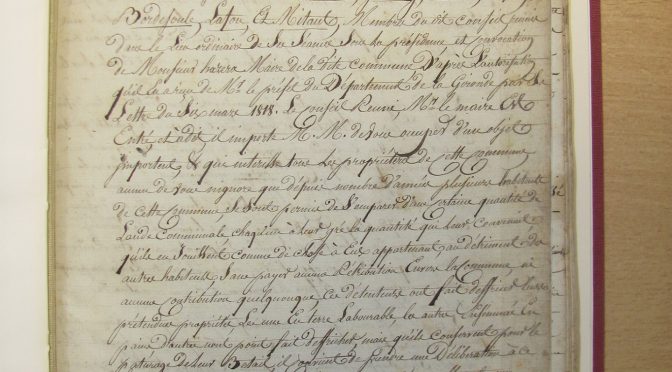 Bordefoule, Lafon Et Mitaut, Membre du dit Conseil réunis
dans le Lieu ordinaire de Ses Séances Sous la présidence et convocation
de Monsieur Maire de la dite Commune D'après L'autorisation
qu'il a reçu de Mr le préfet du Département de la Gironde par Sa
Lettre du Six mars 1818. Le Conseil Reuni, Mr le maire Est
Entré et a dit, il importe M. M. de vous occuper d'un objet
important, & qui interesse tous Les propriétaires de cette Commune
aucun de vous nignore que depuis nombre d'année plusieurs habitants
de cette Commune Se Sont permis de S'emparer d'une certaine quantité de
Lande Communale chaqu'un à leur gré la quantité qui leur Convenait
qu'ils en Jouissent comme de chose à Eux appartenant au détriment des
autre habitants, Sans payer aucune Rétribution Envers la Commune, ni
aucune Contribution quelquonque Ces détenteurs ont fait deffricher Leurs
prétendues propriétés Les uns En terre Labourable, les autre
d'autre nont point fait deffricher, mais qu'ils Conservent pour le
paturage de leur Betail, il convient de prendre une Délibération à ce